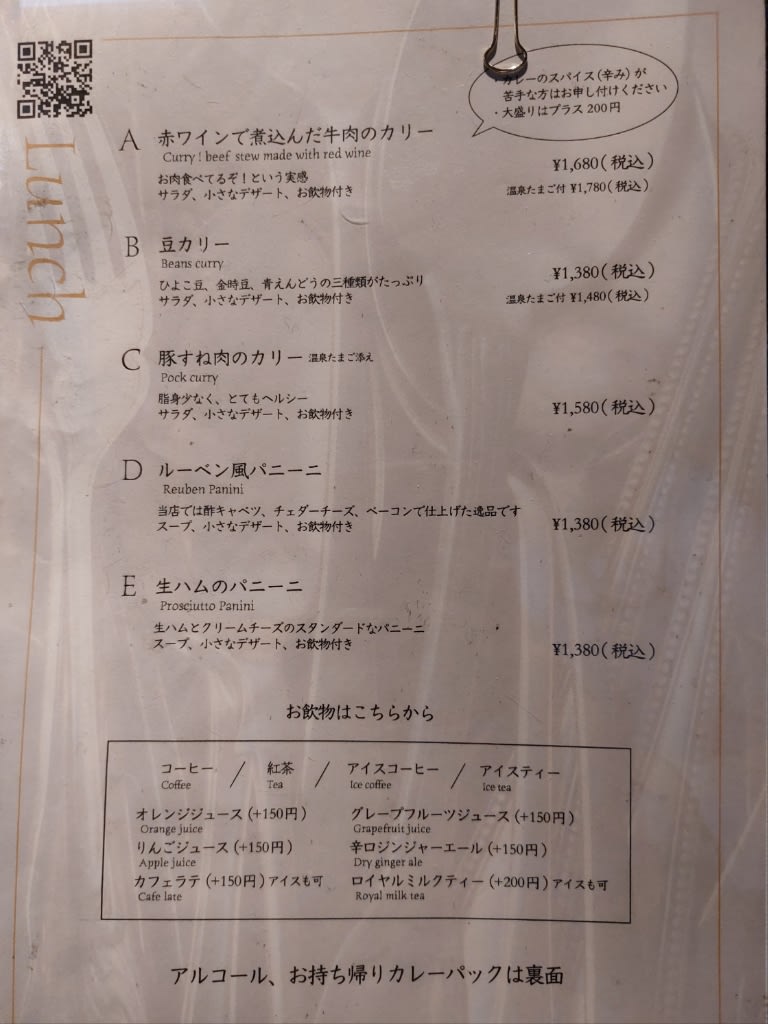 Lunch
・カレーのスパイス(辛み)が
苦手な方はお申し付けください
・大盛りはプラス200円
A 赤ワインで煮込んだ牛肉のカリー
Curry! beef stew made with red wine
¥1,680(税込)
お肉食べてるぞ!という実感
サラダ、小さなデザート、お飲物付き
温泉たまご付 ¥1,780(税込)
B 豆カリー
Beans curry
¥1,380(税込)
ひよこ豆、金時豆、青えんどうの三種類がたっぷり
サラダ、小さなデザート、お飲物付き
温泉たまご付 ¥1,480(税込)
C 豚すね肉のカリー 温泉たまご添え
Pock curry
脂身少なく、とてもヘルシー
サラダ、小さなデザート、お飲物付き
¥1,580(税込)
D ルーベン風パニーニ
Reuben Panini
当店では酢キャベツ、チェダーチーズ、ベーコンで仕上げた逸品です
スープ、小さなデザート、お飲物付き
¥1,380(税込)
E 生ハムのパニーニ
Prosciutto Panini
生ハムとクリームチーズのスタンダードなパニーニ
スープ、小さなデザート、お飲物付き
¥1,380(税込)
お飲物はこちらから
コーヒー / 紅茶 / アイスコーヒー / アイスティー
Coffee Tea Ice coffee Ice tea
オレンジジュース(+150円) グレープフルーツジュース(+150円)
Orange juice Grapefruit juice
りんごジュース(+150円) 辛口ジンジャーエール(+150円)
Apple juice Dry ginger ale
カフェラテ(+150円)アイスも可 ロイヤルミルクティー(+200円)アイスも可
Cafe late Royal milk tea
アルコール、お持ち帰りカレーパックは裏面